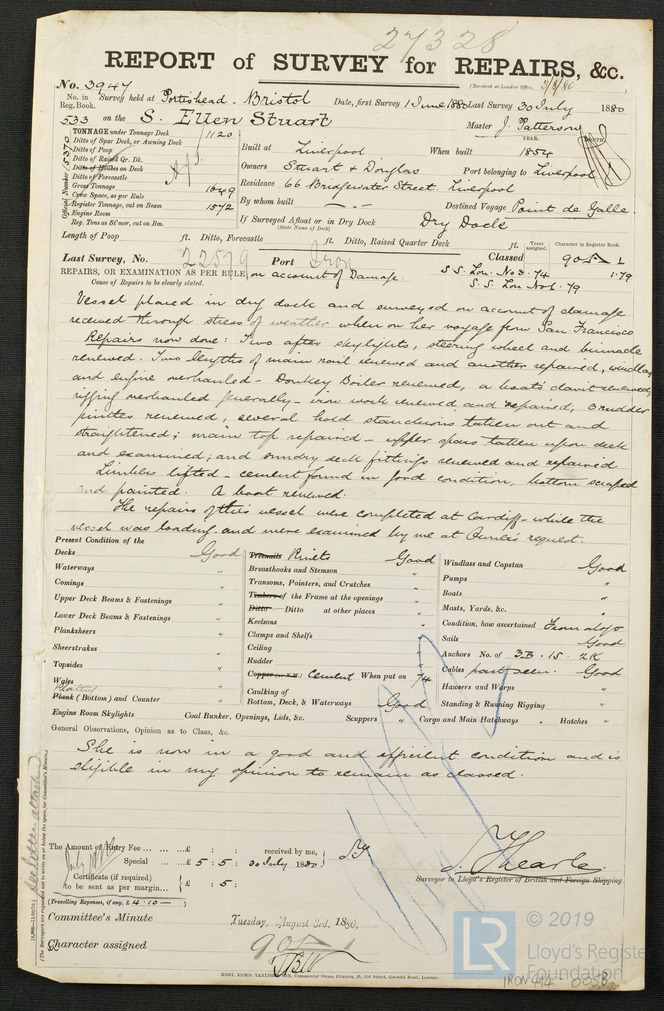 27328
REPORT of SURVEY for REPAIRS, &c.
(Received at London Office, 3/8/80
No. 3947
No. in Reg. Book. Survey held at Portishead - Bristol Date, first Survey 1 June 1880 Last Survey 30 July 1880
533 on the S. Ellen Stuart Master J. Patterson
TONNAGE under Tonnage Deck 1120
Ditto of Spar Deck, or Awning Deck
Ditto of Poop
Ditto of Raised Qr. Dk.
Ditto of Houses on Deck
Ditto of Forecastle
Gross Tonnage 1649
Crew Space, as per Rule
Register Tonnage, cut on Beam 1572
Engine Room
Reg. Tons as St'mer, cut on Bm.
Official Number 5370
YEAR. MONTH.
Built at Liverpool When built 1854
Owners Stuart & Douglas Port belonging to Liverpool
Residence 66 Bridgewater Street Liverpool
By whom built - - Destined Voyage Point de Galle
If Surveyed Afloat or in Dry Dock Dry Dock
(State Name of Dock)
Length of Poop ft. Ditto, Forecastle ft. Ditto, Raised Quarter Deck ft.
Years assigned. Character in Register Book.
Last Survey, No. 22579 Port Iron Classed 90 A 1
S.S. Lon. No 3. 74 1.79
S.S. Lon No 1. 79
REPAIRS, OR EXAMINATION AS PER RULE, on account of Damage
Cause of Repairs to be clearly stated.
Vessel placed in dry dock and surveyed on account of damage
received through stress of weather when on her voyage from San Francisco
Repairs now done: Two after skylights, steering wheel and binnacle
renewed. Two lengths of main rail renewed and another repaired, windlass
and engine overhauled - Donkey Boiler renewed, a boats davit renewed,
rigging overhauled generally - iron work renewed and repaired, 3 rudder
pintles renewed, several hold stanchions taken out and
straightened; main top repaired - upper spars taken upon deck
and examined; and sundry deck fittings renewed and repaired
Limbers lifted - cement found in good condition, bottom scraped
and painted. A boat renewed.
The repairs of this vessel were completed at Cardiff - while the
vessel was loading - and were examined by me at Owners request.
Present Condition of the
Decks Good
Waterways "
Comings "
Upper Deck Beams & Fastenings "
Lower Deck Beams & Fastenings "
Planksheers "
Sheerstrakes "
Topsides "
Wales "
Plating
Plank (Bottom) and Counter "
Engine Room Skylights
Treenails Rivets Good
Breasthooks and Stemson "
Transoms, Pointers, and Crutches "
Timbers of the Frame at the openings "
Ditto Ditto at other places "
Keelsons "
Clamps and Shelfs "
Ceiling "
Rudder "
Copper (or Y.M.) Cement When put on 74
Caulking of
Bottom, Deck, & Waterways Good
Coal Bunker, Openings, Lids, &c. Scuppers " Cargo and Main Hatchways " Hatches "
Windlass and Capstan Good
Pumps "
Boats "
Masts, Yards, &c. "
Condition, how ascertained From aloft
Sails Good
Anchors No. of 3.B. 1S. 2K
Cables part seen. Good
Hawsers and Warps "
Standing & Running Rigging "
General Observations, Opinion as to Class, &c.
She is now in a good and efficient condition and is
eligible in my opinion to remain as classed.
See letter attached
(The Surveyors are requested not to write on or below the space for Committee's Minute.)
The Amount of Entry Fee ... ... £ : : received by me,
Special ... ... £ 5 : 5 : 30 July 1880
Certificate (if required) £ : 5 :
to be sent as per margin...
(Travelling Expenses, if any, £ 4.10 -)
Surveyor to Lloyd's Register of British and Foreign Shipping.
Committee's Minute Tuesday, August 3rd, 1880.
Character assigned 90 A 1
© 2019
Lloyd's Register
Foundation
LR
IRON 414 - 0058